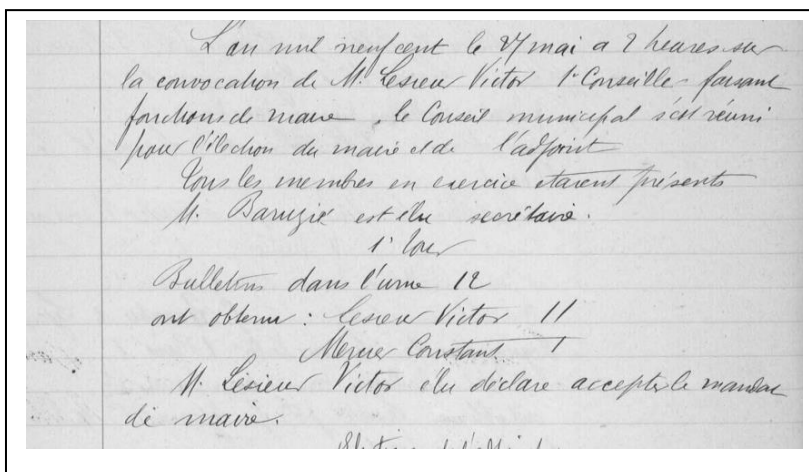 L'an mil neuf cent le 27 mai a 2 heures sur
la convocation de M. Lesieur Victor 1er Conseiller faisant
fonctions de maire, le Conseil municipal s'est réuni
pour l'élection du maire et de l'adjoint
Tous les membres en exercice étaient présents
M. Baruzié est élu secrétaire.
1r Tour
Bulletins dans l'urne 12
ont obtenu : Lesieur Victor 11
Mercier Constant 1
M. Lesieur Victor élu déclare accepter le mandat
de maire.